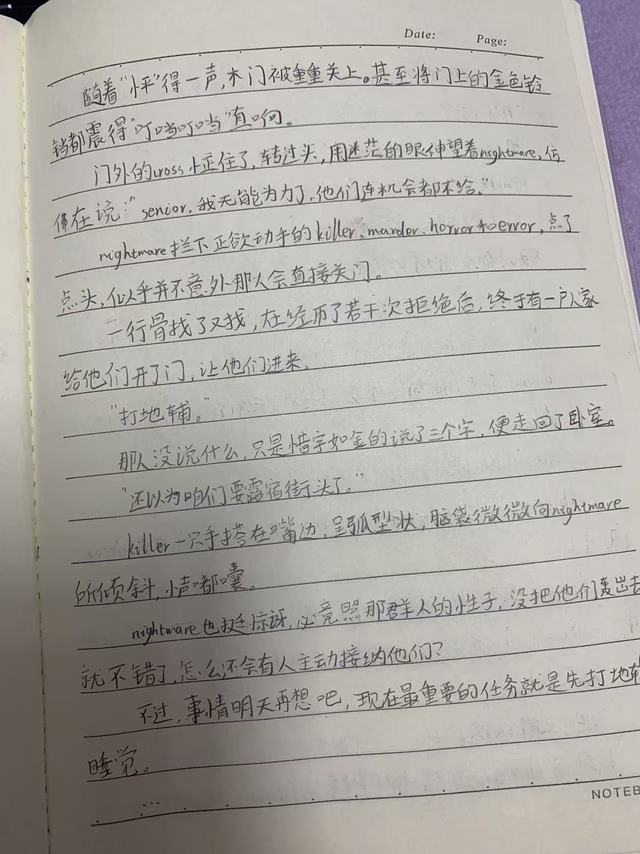 Date: Page:
随着“怦”得一声,木门被重重关上。甚至将门上的金色铃
铛都震得“叮当叮当”直响。
门外的cross怔住了,转过头,用迷茫的眼神望着nightmare,仿
佛在说:“senior,我无能为力了,他们连机会都不给。”
nightmare拦下正欲动手的killer、murder、horror和error,点了
点头,似乎并不意外那人会直接关门。
一行骨找了又找,在经历了若干次拒绝后,终于有一户人家
给他们开了门,让他们进来。
“打地铺。”
那人没说什么,只是惜字如金的说了三个字,便走回了卧室。
“还以为咱们要露宿街头了。”
killer一只手搭在嘴边,呈弧型状,脑袋微微向nightmare
所倾斜,小声嘟囔。
nightmare也挺惊讶,必竟照那群人的性子,没把他们轰出去
就不错了,怎么还会有人主动接纳他们?
不过,事情明天再想吧,现在最重要的任务就是先打地铺
睡觉。
...
NOTEB